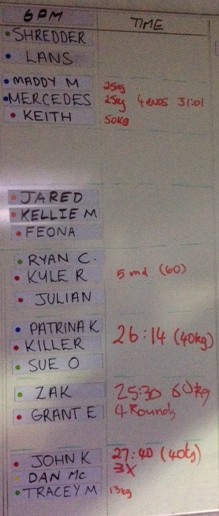 6PM TIME
SHREDDER
LANS
MADDY M 25kg
MERCEDES 25kg 4 RNDS 31:01
KEITH 50kg
JARED
KELLIE M
FEONA
RYAN C.
KYLE R 5 rnd (60)
JULIAN
PATRINA K
KILLER 26:14 (40kg)
SUE O
ZAK 25:30 60kg
GRANT E 4 Rounds
JOHN K 27:40 (40kg)
DAN MC 3X
TRACEY M 13kg